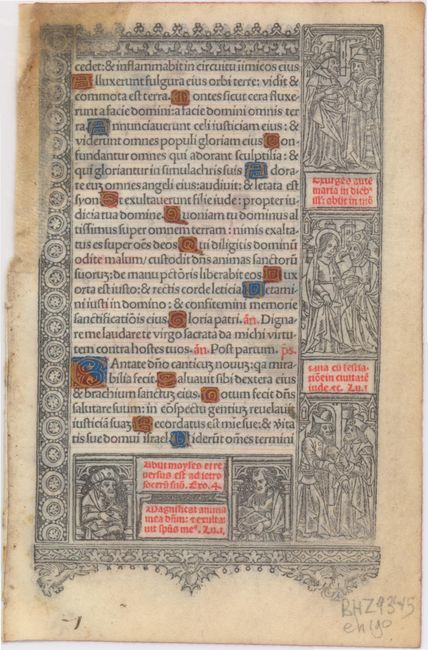 cedet: & inflammabit in circuitu iimicos eius
Alluxerunt fulgura eius orbi terre: vidit &
commota est terra. Montes sicut cera fluxe
runt a facie domini: a facie domini omnis ter
ra Annunciauerunt celi iusticiam eius: &
viderunt omnes populi gloriam eius Con
fundantur omnes qui adorant sculptilia: &
qui gloriantur in simulachris suis Adora
te euz omnes angeli eius: audiuit: & letata est
syon Et exultauerunt filie iude: propter iu
dicia tua domine. Quoniam tu dominus al
tissimus super omnem terram: nimis exalta
tus es super oēs deos Qui diligitis dominū
odite malum/ custodit dn̄s animas sanctorū
suoruz: de manu pctōris liberabit eos. Lux
orta est iusto: & rectis corde leticia Letami
ni iusti in domino: & confitemini memorie
sanctificatiōis eius Gloria patri. añ. Digna
re me laudare te virgo sacrata da michi virtu
tem contra hostes tuos. añ. Post partum. ps.
Cantate dn̄o canticuz nouuz: qa mira
bilia fecit. Saluauit sibi dextera eius
& brachium sanctuz eius. Notum fecit dn̄s
salutare suum: in cōspectu gentiuz reuelauit
iusticiā suaz Recordatus est mīe sue: & vita
tis sue domui israel. Viderūt om̄es termini
Exurgēs autē
maria in dieb
is: abiit in mō
tana cū festia
tiōe in ciuitatē
iude. &c. Lu. i
Abiit moyses et re
versus est ad ietro
socerū suū. Exo. 4.
Magnificat anima
mea dn̄m: & exulta
uit spūs me. Lu. i
BHZ9345
-1